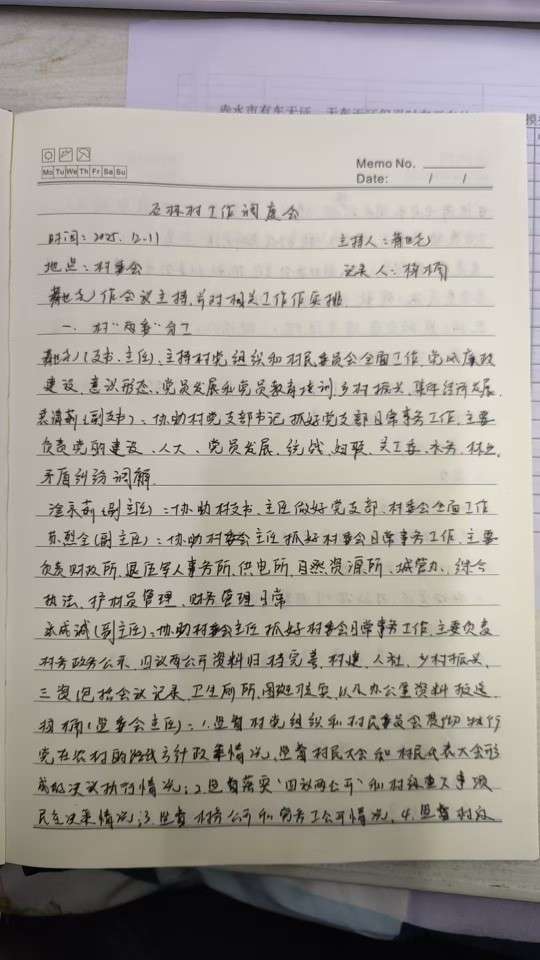 赤水市有车无证、无车无证
Mo Tu We Th Fr Sa Su
Memo No.
Date: / /
石林村工作调度会
时间：2025.12.11 主持人：
地点：村委会 记录人：
作会议主持，并对相关工作作安排
一、村“两委”分工
(支书、主任)、主持村党组织和村民委员会全面工作，党风廉政
建设、意识形态、党员发展和党员教育培训、乡村振兴、集体经济发展.
(副支书)：协助村党支部书记抓好党支部日常事务工作，主要
负责党的建设、人大、党员发展、统战、妇联、关工委、水务、林业、
矛盾纠纷调解.
(副主任)：协助村支书、主任做好党支部、村委会全面工作
(副主任)：协助村委会主任抓好村委会日常事务工作，主要
负责财政所、退役军人事务所、供电所、自然资源所、城管办、综合
执法、护林员管理、财务管理日常
(副主任)：协助村委会主任抓好村委会日常事务工作，主要负责
村务政务公示、四议两公开资料归档完善、村建、人社、乡村振兴、
三资(包括会议记录、卫生厕所、以及办公室资料报送
(监委会主任)：1.监督村党组织和村民委员会贯彻执行
党在农村的路线方针政策情况，监督村民大会和村民代表大会形
成的决议执行情况；2.监督落实“四议两公开”和村级重大事项
民主决策情况；3.监督村务公开和党务公开情况，4.监督村